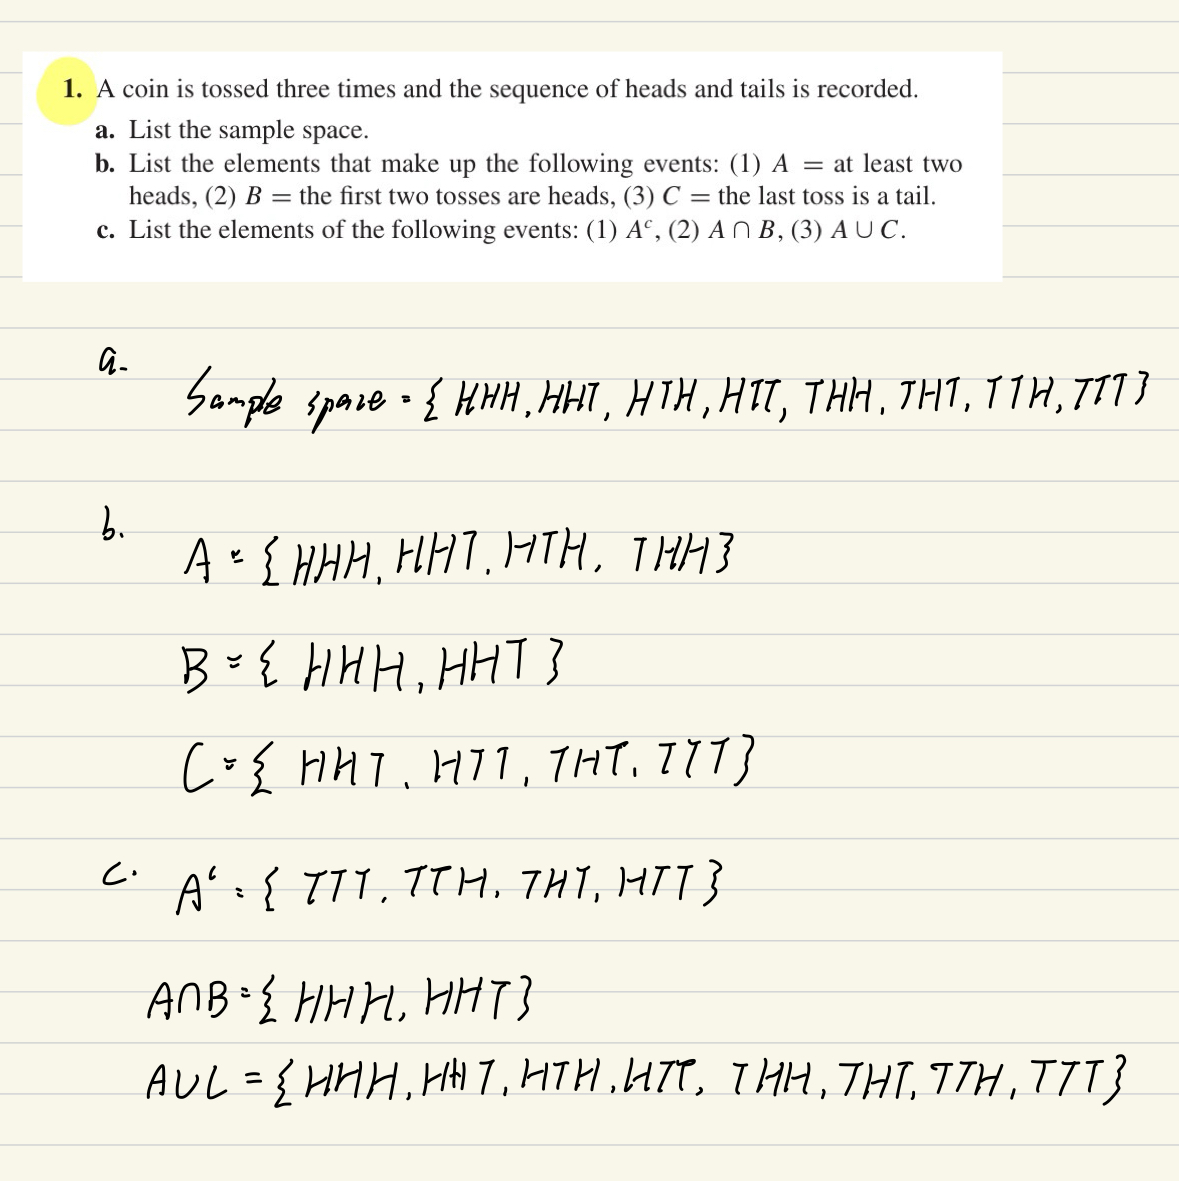 1. A coin is tossed three times and the sequence of heads and tails is recorded.
a. List the sample space.
b. List the elements that make up the following events: (1) A = at least two
heads, (2) B = the first two tosses are heads, (3) C = the last toss is a tail.
c. List the elements of the following events: (1) Aᶜ, (2) A ∩ B, (3) A ∪ C.
a.
Sample space = { HHH, HHT, HTH, HTT, THH, THT, TTH, TTT }
b.
A = { HHH, HHT, HTH, THH }
B = { HHH, HHT }
C = { HHT, HTT, THT, TTT }
c. Aᶜ = { TTT, TTH, THT, HTT }
A∩B = { HHH, HHT }
A∪C = { HHH, HHT, HTH, HTT, THH, THT, TTH, TTT }